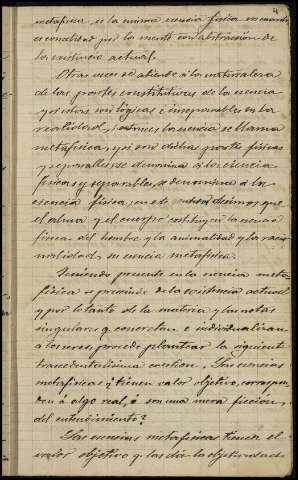 metafísica, es la misma esencia física en cuanto
es concebida por la mente con abstracción de
la existencia actual.
Otras veces se atiende a la naturaleza
de las partes constitutivas de la esencia
y si estas son lógicas e inseparables en la
realidad, entonces la esencia se llama
metafísica, y si son dichas partes físicas
y separables se denomina a la esencia
físicas y separables, se denomina a la
esencia física, en este sentido decimos que
el alma y el cuerpo constituyen la esencia
física del hombre y la animalidad y la racio
nalidad, su esencia metafísica.
Teniendo presente en la esencia meta
física se prescinde de la existencia actual
y por lo tanto de la materia y las notas
singulares q. concretan e individualizan
a los seres, procede plantear la siguiente
trascendentalísima cuestión. ¿Las esencias
metafísicas, tienen valor objetivo, correspon
den a algo real, o son una mera ficción,
del entendimiento?
Las esencias metafísicas tienen el
valor objetivo q. les da la objetividad